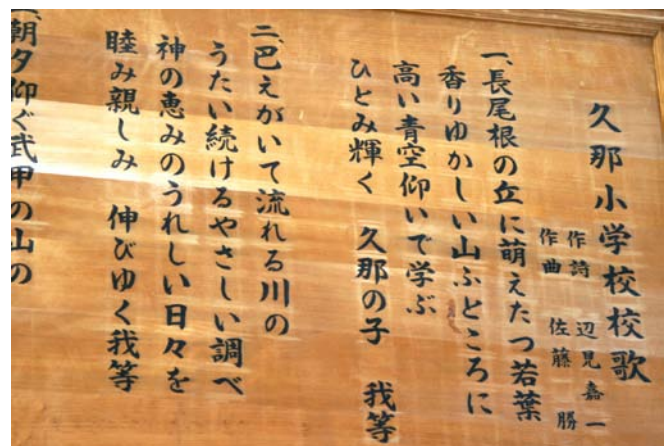 久那小学校校歌
作詩 辺見嘉一
作曲 佐藤勝
一、長尾根の丘に萌えたつ若葉
香りゆかしい山ふところに
高い青空仰いで学ぶ
ひとみ輝く 久那の子 我等
二、巴えがいて流れる川の
うたい続けるやさしい調べ
神の恵みのうれしい日々を
睦み親しみ 伸びゆく我等
朝夕仰ぐ武甲の山の